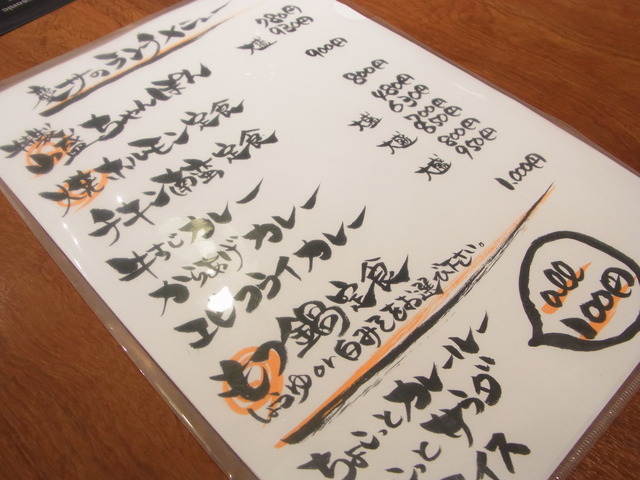 慶州のランチメニュー
特盛ちゃんぽん 780円
大盛 930円
焼ホルモン定食 900円
チキン南蛮定食 800円
牛すじカレー 480円
大盛 630円
からあげカレー 700円
大盛 850円
エビフライカレー 800円
大盛 950円
もつ鍋定食 1000円
しょうゆor白みそをお選び下さい。
all 100円
ちょこっとカレールー
ちょこっとサラダ
ライス